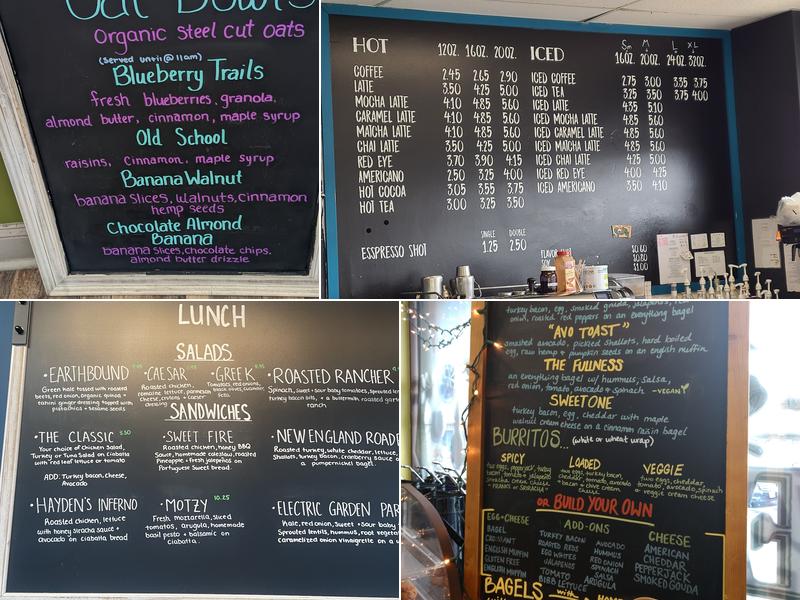 Oat Bowls
Organic steel cut oats
(served until @ 11am)
Blueberry Trails
fresh blueberries, granola,
almond butter, cinnamon, maple syrup
Old School
raisins, cinnamon, maple syrup
Banana Walnut
banana slices, walnuts, cinnamon
hemp seeds
Chocolate Almond
Banana
banana slices, chocolate chips,
almond butter drizzle
HOT 12OZ. 16OZ. 20OZ.
COFFEE 2.45 2.65 2.90
LATTE 3.50 4.25 5.00
MOCHA LATTE 4.10 4.85 5.60
CARAMEL LATTE 4.10 4.85 5.60
MATCHA LATTE 4.10 4.85 5.60
CHAI LATTE 3.50 4.25 5.00
RED EYE 3.70 3.90 4.15
AMERICANO 2.50 3.25 4.00
HOT COCOA 3.05 3.55 3.75
HOT TEA 3.00 3.25 3.50
SINGLE DOUBLE
ESSPRESSO SHOT 1.25 2.50
ICED
S M L XL
16OZ. 20OZ. 24OZ. 32OZ.
ICED COFFEE 2.75 3.00 3.35 3.75
ICED TEA 3.25 3.50 3.75 4.00
ICED LATTE 4.35 5.10
ICED MOCHA LATTE 4.85 5.60
ICED CARAMEL LATTE 4.85 5.60
ICED MATCHA LATTE 4.85 5.60
ICED CHAI LATTE 4.25 5.00
ICED RED EYE 4.00 4.25
ICED AMERICANO 3.50 4.10
LUNCH
SALADS
• EARTHBOUND
Green kale tossed with roasted
beets, red onion, organic quinoa +
tahini ginger dressing topped with
pistachios + sesame seeds
• CAESAR
Roasted chicken,
romaine lettuce, parmesan
cheese, croutons + caesar
dressing
• GREEK
Tomatoes, red onions,
Feta
• ROASTED RANCHER
Spinach, sweet + sour baby tomatoes, sprouted
turkey bacon bits, + a buttermilk, roasted
ranch
SANDWICHES
• THE CLASSIC
Your choice of Chicken Salad,
Turkey or Tuna Salad on Ciabatta
with red leaf lettuce or tomato
ADD: Turkey bacon, cheese,
Avocado
• SWEET FIRE
Roasted chicken, honey BBQ
Sauce, homemade coleslaw, roasted
Pineapple + fresh jalapenos on
Portuguese Sweet bread.
• NEW ENGLAND ROAD
Roasted turkey, white cheddar, lettuce,
Shallots, turkey bacon, cranberry sauce
a pumpernickel bagel.
• HAYDEN'S INFERNO
Roasted chicken, lettuce
with honey siracha sauce +
avocado on ciabatta bread
• MOTZY 10.25
Fresh mozzarella, sliced
tomatoes, arugula, homemade
basil pesto + balsamic on
ciabatta.
• ELECTRIC GARDEN PAR
Kale, red onion, Sweet + Sour baby
Sprouted lentils, hummus, root
caramelized onion vinaigrette on
turkey bacon, egg, smoked gouda, jalapeños,
onion, roasted red peppers on an everything bagel
"AVO TOAST"
smashed avocado, pickled shallots, hard boiled
egg, raw hemp + pumpkin seeds on an english muffin
THE FULLNESS
an everything bagel w/ hummus, salsa,
red onion, tomato, avocado & spinach -VEGAN
SWEETONE
turkey bacon, egg, cheddar with maple
walnut cream cheese on a cinnamon raisin bagel
BURRITOS... (white or wheat wrap)
SPICY
two eggs, pepperjack, turkey
LOADED
two eggs, turkey bacon,
cheddar, tomato, avocado
+ bacon + chive cream
VEGGIE
two eggs, cheddar,
tomato, avocado, spinach
+ veggie cream cheese
or BUILD YOUR OWN
EGG + CHEESE
BAGEL
CROISSANT
ENGLISH MUFFIN
GLUTEN FREE
ENGLISH MUFFIN
ADD-ONS
TURKEY BACON
ROASTED REDS
EGG WHITES
JALAPENOS
SPINACH
TOMATO
BIBB LETTUCE
AVOCADO
HUMMUS
RED ONION
SPINACH
SALSA
ARUGULA
CHEESE
AMERICAN
CHEDDAR
PEPPERJACK
SMOKED GOUDA
BAGELS with